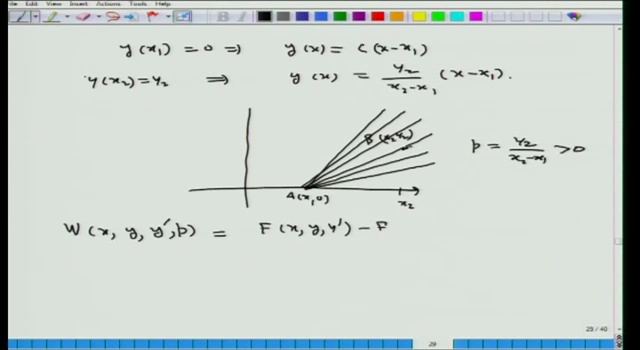 File Edit View Insert Actions Tools Help
y(x₁) = 0 ⇒ y(x) = C(x-x₁)
y(x₂) = y₂ ⇒ y(x) = y₂/(x₂-x₁) (x-x₁).
B(x₂,y₂)
p = y₂/(x₂-x₁) > 0
A(x₁,0)
x₂
W(x, y, y′, p) = F(x, y, y′) - F
29 / 40
29